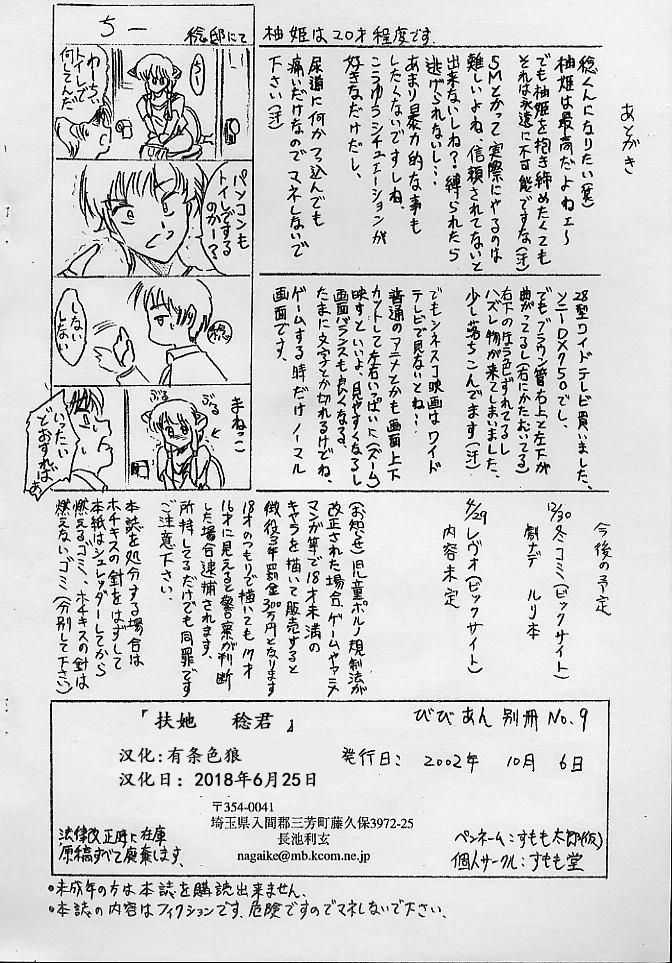 あとがき
稔くんになりたい(笑)
柚姫は最高だよねェ〜
でも柚姫を抱き締めたくても
それは永遠に不可能ですな(汗)
SMとかって実際にやるのは
難しいよね、信頼されてないと
出来ないしね?縛られたら
逃げられないし…
あまり暴力的な事も
したくないですしね、
こうゆうシチュエーションが
好きなだけだし、
尿道に何かつっ込んでも
痛いだけなのでマネしないで
下さい(汗)
柚姫は20才程度です.
稔邸にて
ちー
ちー
わーちぃ
トイレで
何してんだ
パソコンも
トイレするの
のかー?
稔
しない
しない
まねっこ
ぶる
ぶる
いったい
どおすれば
28型ワイドテレビ買いました、
ソニーDX750でし、
でもブラウン管右上と左下が
曲がってるし(右にかたむいてる)
右下の片う色ずれてるし
ハズレ物が来てしまいました、
少し落ちこんでます(汗)
でもシネスコ映画はワイド
テレビで見ないとね!
普通のアニメとかも画面上下
カットして左右いっぱいに(ズーム)
映すといいよ、見やすくなるし
画面バランスも良くなる、
たまに文字とか切れるけどね、
ゲームする時だけノーマル
画面です、
今後の予定
12/30冬コミ(ビックサイト)
劇ナデ ルリ本
4/29レヴォ(ビックサイト)
内容未定
(お知らせ)児童ポルノ規制法が
改正された場合、ゲームやアニメ
マンガ等で18才未満の
キャラを描いて販売すると
懲役3年罰金300万円となります
18才のつもりで描いても17才
16才に見えると警察が判断
した場合逮捕されます、
所持してるだけでも同罪です
ご注意下さい、
本誌を処分する場合は
ホチキスの針をはずして
本紙はシュレッダーしてから
燃えるゴミ、ホチキスの針は
燃えないゴミ(分別して下さい)
『扶她 稔君』
びびあん 別冊 No.9
汉化:有条色狼
発行日: 2002年 10月 6日
汉化日:2018年6月25日
〒354-0041
埼玉県入間郡三芳町藤久保3972-25
長池利玄
nagaike@mb.kcom.ne.jp
法律改正時に在庫
原稿すべて廃棄します.
ペンネーム:すもも太郎(仮)
個人サークル:すもも堂
•未成年の方は本誌を購読出来ません.
•本誌の内容はフィクションです.危険ですのでマネしないで下さい.